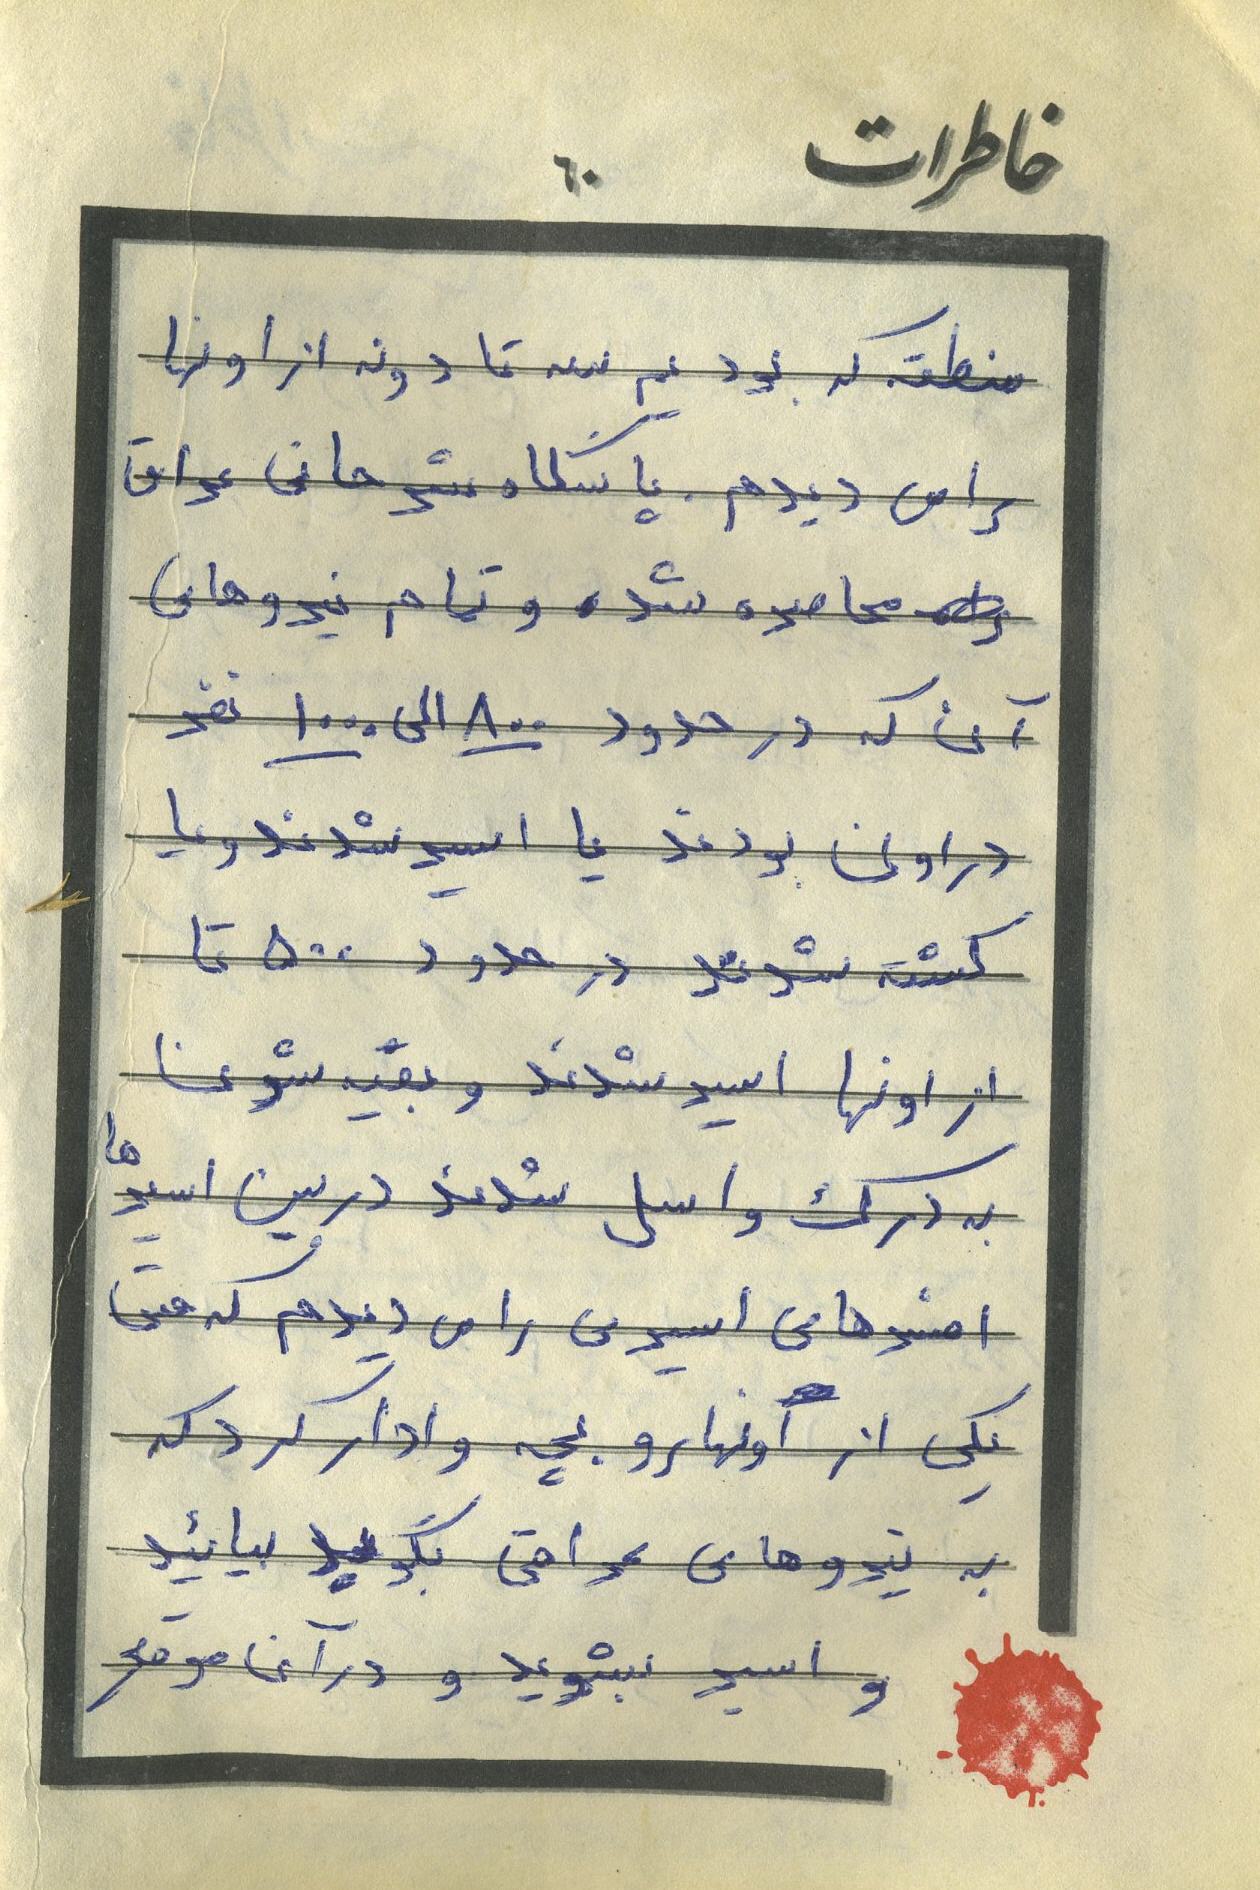 خاطرات
٦٠
منطقه که بودیم سه تا دونه از اونها
را من دیدم . پاسگاه شرحانی عراق
محاصره شده و تمام نیروهای
آن که در حدود ۸۰۰ الی ۱۰۰۰ نفر
در اون بودند یا اسیر شدند و یا
کشته شدند در حدود ۵۰۰ تا
از اونها اسیر شدند و بقیه شون
به درک واسل شدند در بین اسیرها
افسرهای اسیری را من دیدم که حتی
یکی از اونها رو بچه وادار کرد که
به نیروهای عراقی بگوید بیائید
و اسیر بشوید و در آن موقع
۲۰